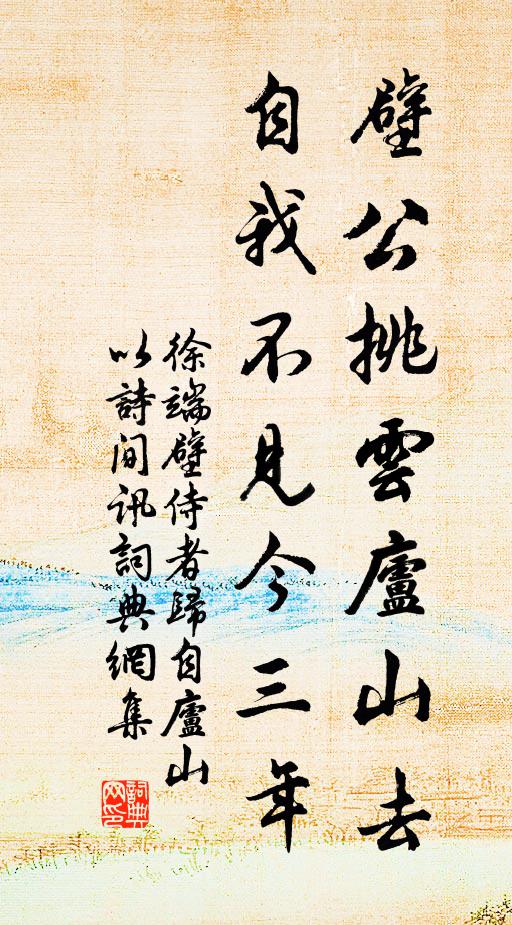 璧公挑雲廬山去
自我不見今三年
徐端璧侍者歸自廬山
以詩問訊詞典網集
詞典網印